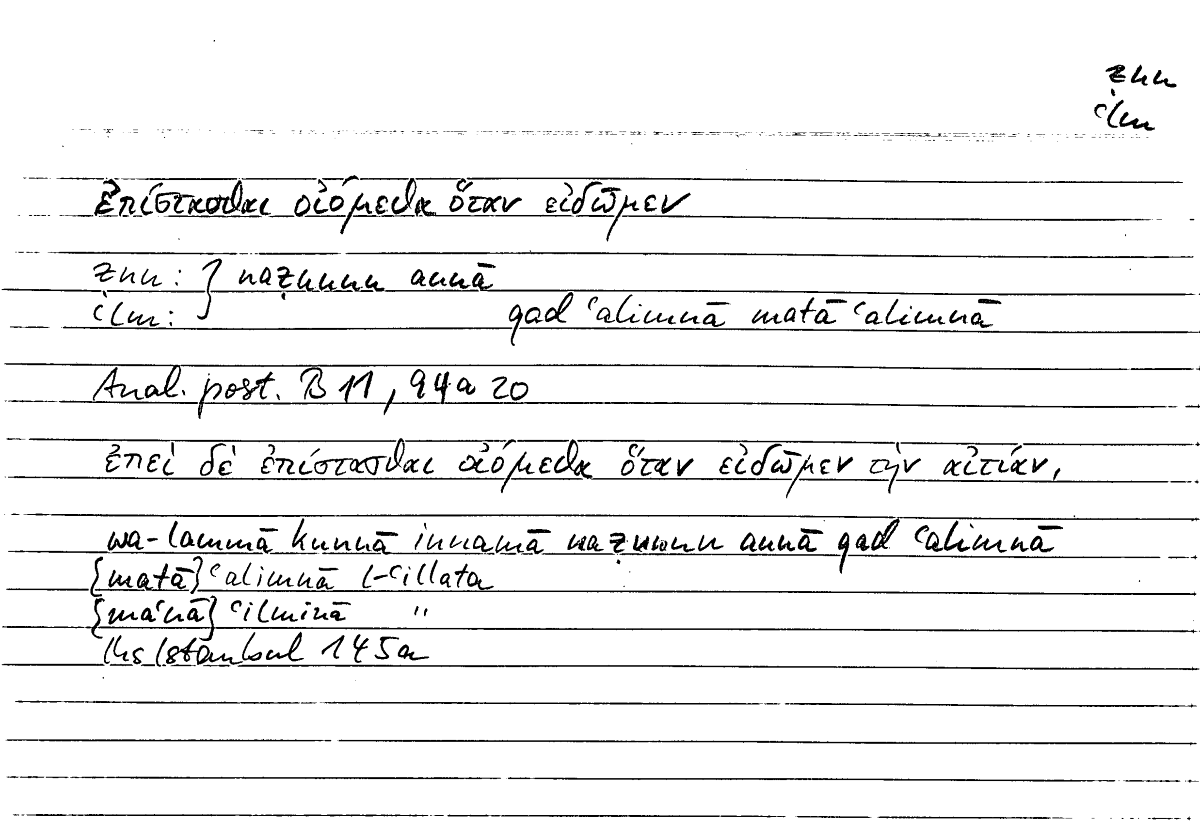 ẓnn
ʿlm
ἐπίστασθαι οἰόμεθα ὅταν εἰδῶμεν
ẓnn : } naẓunnu annā
ʿlm : qad ʿalimnā matā ʿalimnā
Anal. post. B 11, 94a 20
ἐπεὶ δὲ ἐπίστασθαι οἰόμεθα ὅταν εἰδῶμεν τὴν αἰτίαν,
wa-lammā kunnā innamā naẓunnu annā qad ʿalimnā
{matā} ʿalimnā l-ʿillata
{maʿnā} ʿilminā "
Hs Istanbul 145a